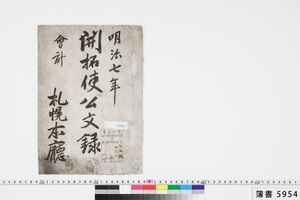 明治七年
開拓使公文録
會計
札幌本廳
簿書 5954